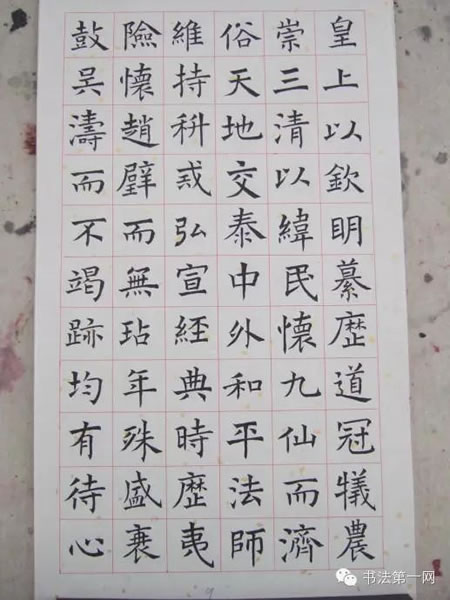 皇上以欽明纂歴道冠犠農
崇三清以緯民懷九仙而濟
俗天地交泰中外和平法師
維持科戒弘宣經典時歴夷
險懷趙璧而無玷年殊盛衰
鼓吴濤而不竭跡均有待心
书法第一网